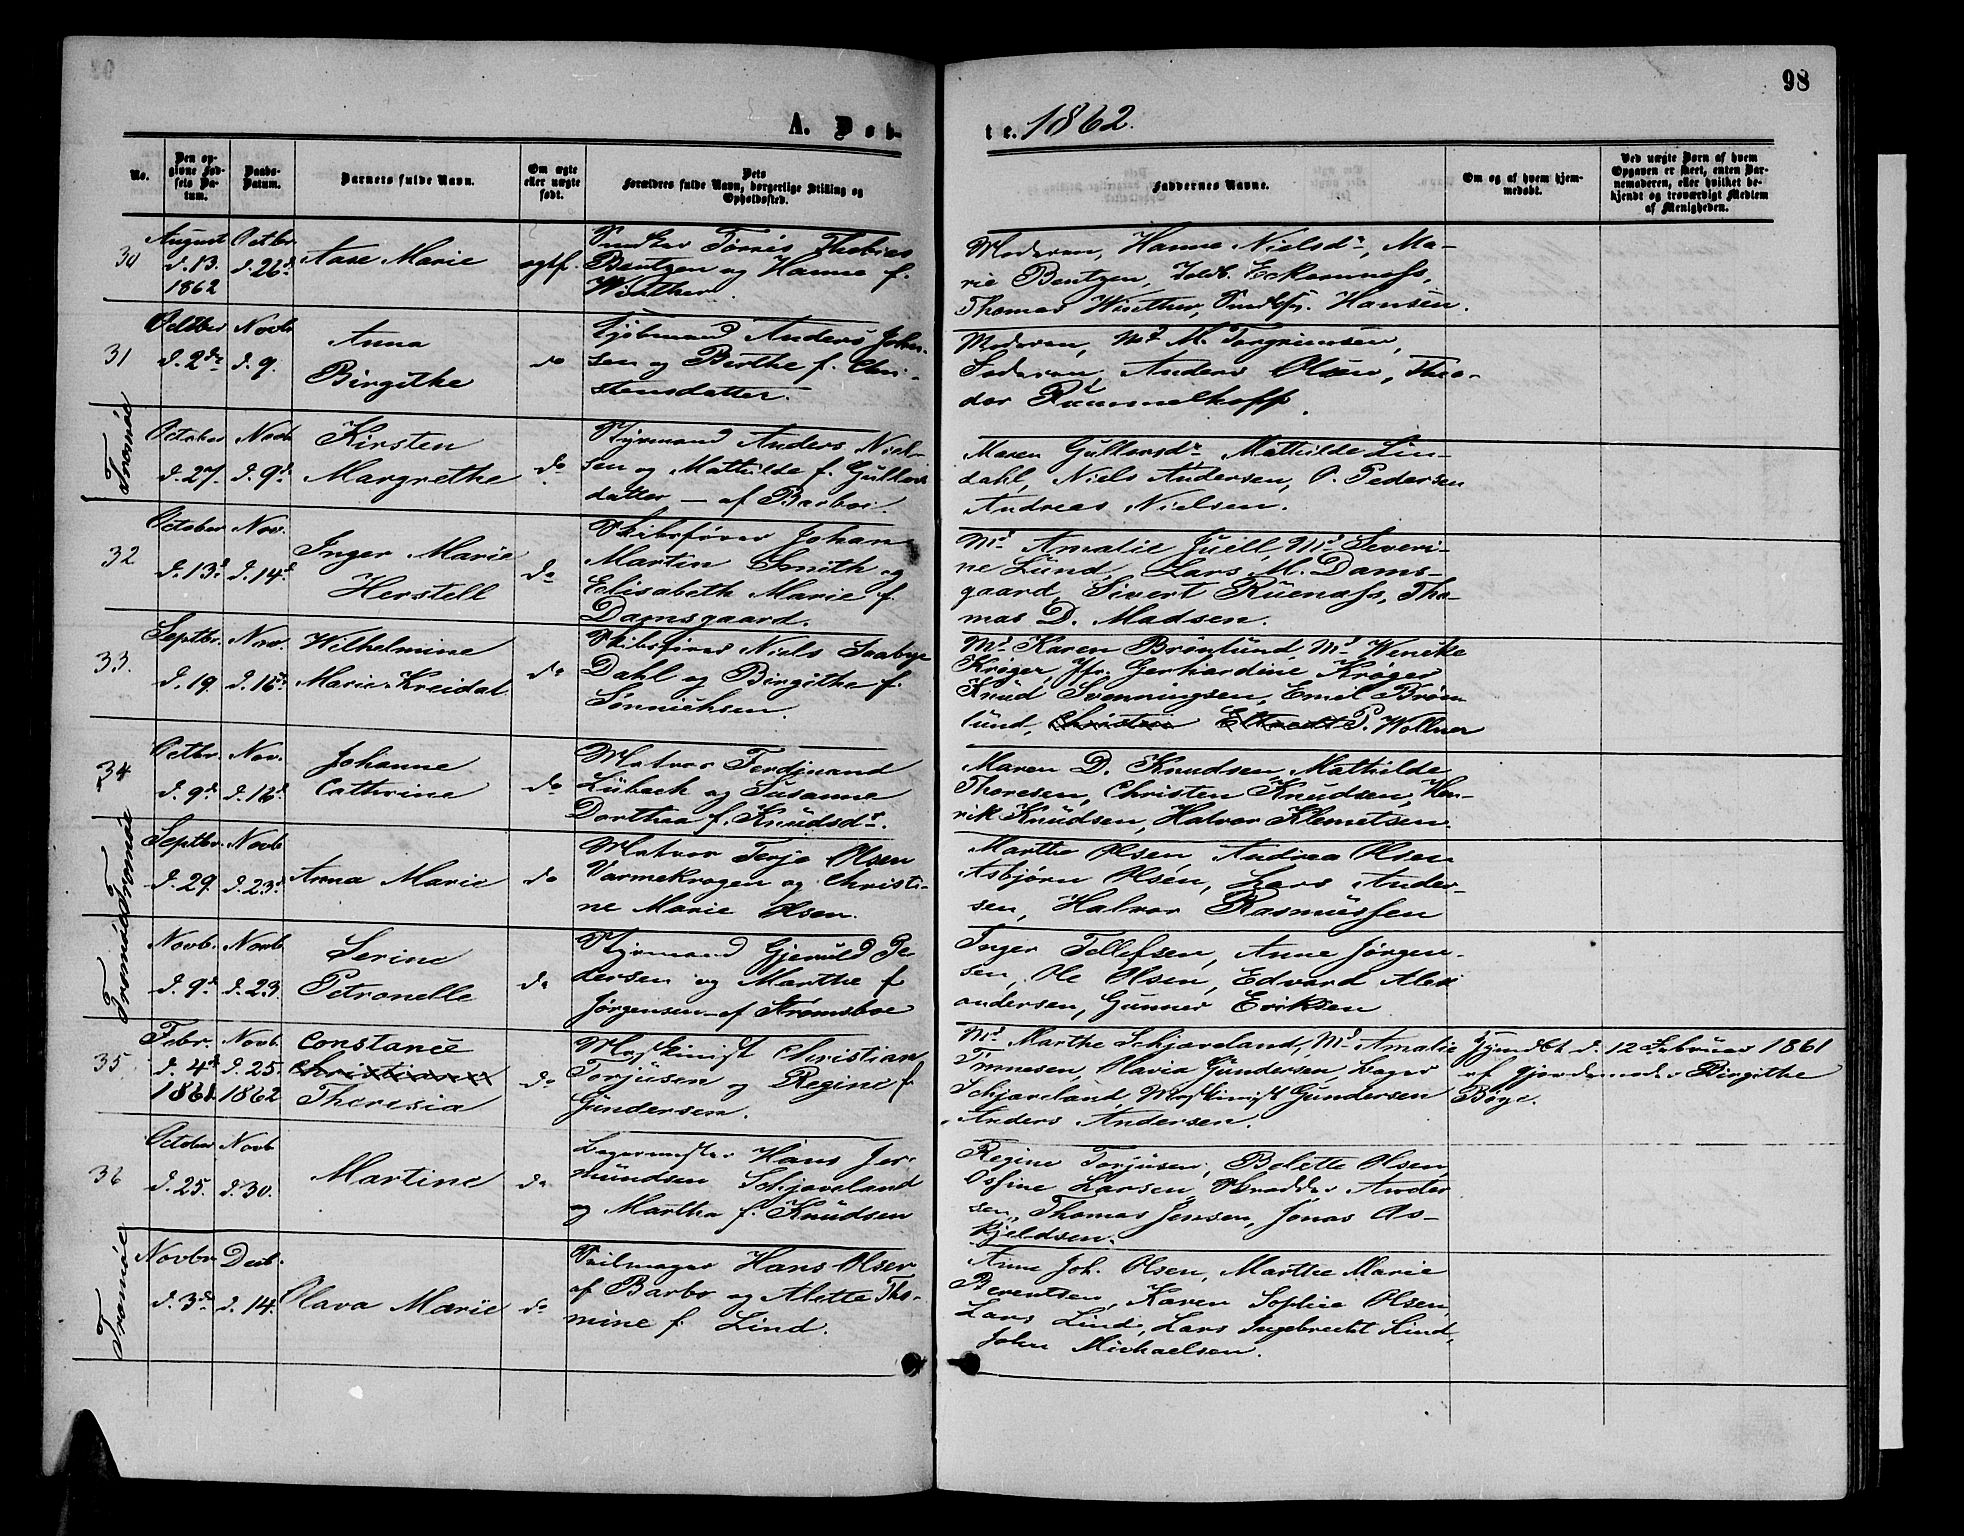 98
A. Døb-
te. 1862.
No.
Den op-
givne Fød-
sels Da-
tum.
Daabs-
Datum.
Barnets fulde Navn.
Om ægte
eller uægte
født.
Dets
Forældres fulde Navn, borgerlige Stilling og
Opholdssted.
Faddernes Navne.
Om og af hvem hjem-
medøbt.
Ved uægte Børn af hvem
Opgaven er skeet, enten Bar-
nemoderen, eller hvilket be-
kjendt og troværdigt Medlem
af Menigheden.
30
August
d. 13.
1862
Octbr.
d. 26d.
Aase Marie
ægtf.
Snedker Tørris Thobias
Bentzen og Hanne f.
Winther.
Moderen, Hanne Nielsdr, Ma-
rie Bentzen, Eckamness,
Thomas Winther, Hansen.
31
October
d. 2den
Novb
d. 9.
Anna
Birgithe
do
Sjömand Anders John-
sen og Berthe f. Chri-
stensdatter.
Moderen, Md M. Torgrimsen,
Faderen, Anders Olsen, Theo-
dor Rummelhoff.
Tromöe
October
d. 27.
Novb
d. 9d.
Kirsten
Margrethe
do
Styrmand Anders Niel-
sen og Mathilde f. Gullovs
datter - af Barboe.
Maren Gullovsdr Mathilde Lin-
dahl, Niels Andersen, O. Pedersen
Andreas Nielsen.
32
October
d. 13d
Nov.
d. 14d.
Inger Marie
Herstell
do
Skibsfører Johan
Martin Smith og
Elisabeth Marie f.
Damsgaard.
Md Amalie Juell, Md Severi-
ne Lund, Lars M. Dams-
gaard, Sivert Ruenass, Tho-
mas D. Madsen.
33.
Septbr.
d. 19.
Nov.
d. 16de
Wilhelmine
Marie Kreidal
do
Skibsfører Niels Saabye
Dahl og Birgithe f.
Sønnichsen.
Md Karen Brönlund, Md Wencke
Krøger, Jfr. Gerhardine Krøger
Knud Svenningsen, Emil Brøn
lund, P. Wollner
34
Octbr.
d. 9d
Nov.
d. 16d.
Johanne
Cathrine
do
Matros Ferdinand
Lübeck og Susanne
Dorthea f. Knudsdr.
Maren D. Knudsen, Mathilde
Thoresen, Christen Knudsen, Hen-
rik Knudsen, Halvor Klemetsen.
Tromöe
Septbr.
d. 29.
Novb
d. 23d
Anna Marie
do
Matros Terje Olsen
Varmekrogen og Christi-
ne Marie Olsen.
Marthe Olsen, Andrea Olsen
Asbjørn Olsen, Lars Ander-
sen, Halvor Rasmussen
Tromöe
Novb.
d. 9d
Novb.
d. 23.
Serine
Petronelle
do
Styrmand Gjeruld Pe-
dersen og Marthe f.
Jørgensen - af Strømsboe
Inger Tellefsen, Anne Jørgen-
sen, Ole Olsen, Edvard Alex
andersen, Gunner Eriksen
35
Febr.
d. 4d
1861.
Novb.
d. 25.
1862
Constance
Christiane
Theresia
do
Maskinist Christian
Torjusen og Regine f.
Gundersen.
Md Marthe Schjaveland, Md Amalie
Timnesen, Olavia Gundersen, Lager
Schjaveland, Maskinist Gundersen
Anders Andersen.
Hjemdbt d. 12 Februar 1861
af Gjordemoder Birgithe
Bøye.
36
October
d. 25.
Novb
d. 30.
Martine
do
Lagermester Hans Jer-
mundsen Schjaveland
og Martha f. Knudsen
Regine Torjusen, Bolette Olsen,
Ossine Larsen, Skrædder Ander
sen, Thomas Jensen, Jonas As-
kjeldsen.
Tromöe
Novbr
d. 3de
Decb.
d. 14.
Olava Marie
do
Seilmager Hans Olsen
af Barbo og Alette Tho-
mine f. Lind.
Anne Joh. Olsen, Marthe Marie
Berentsen, Karen Sophie Olsen,
Lars Lind, Lars Ingebrecht Lind,
John Michaelsen.